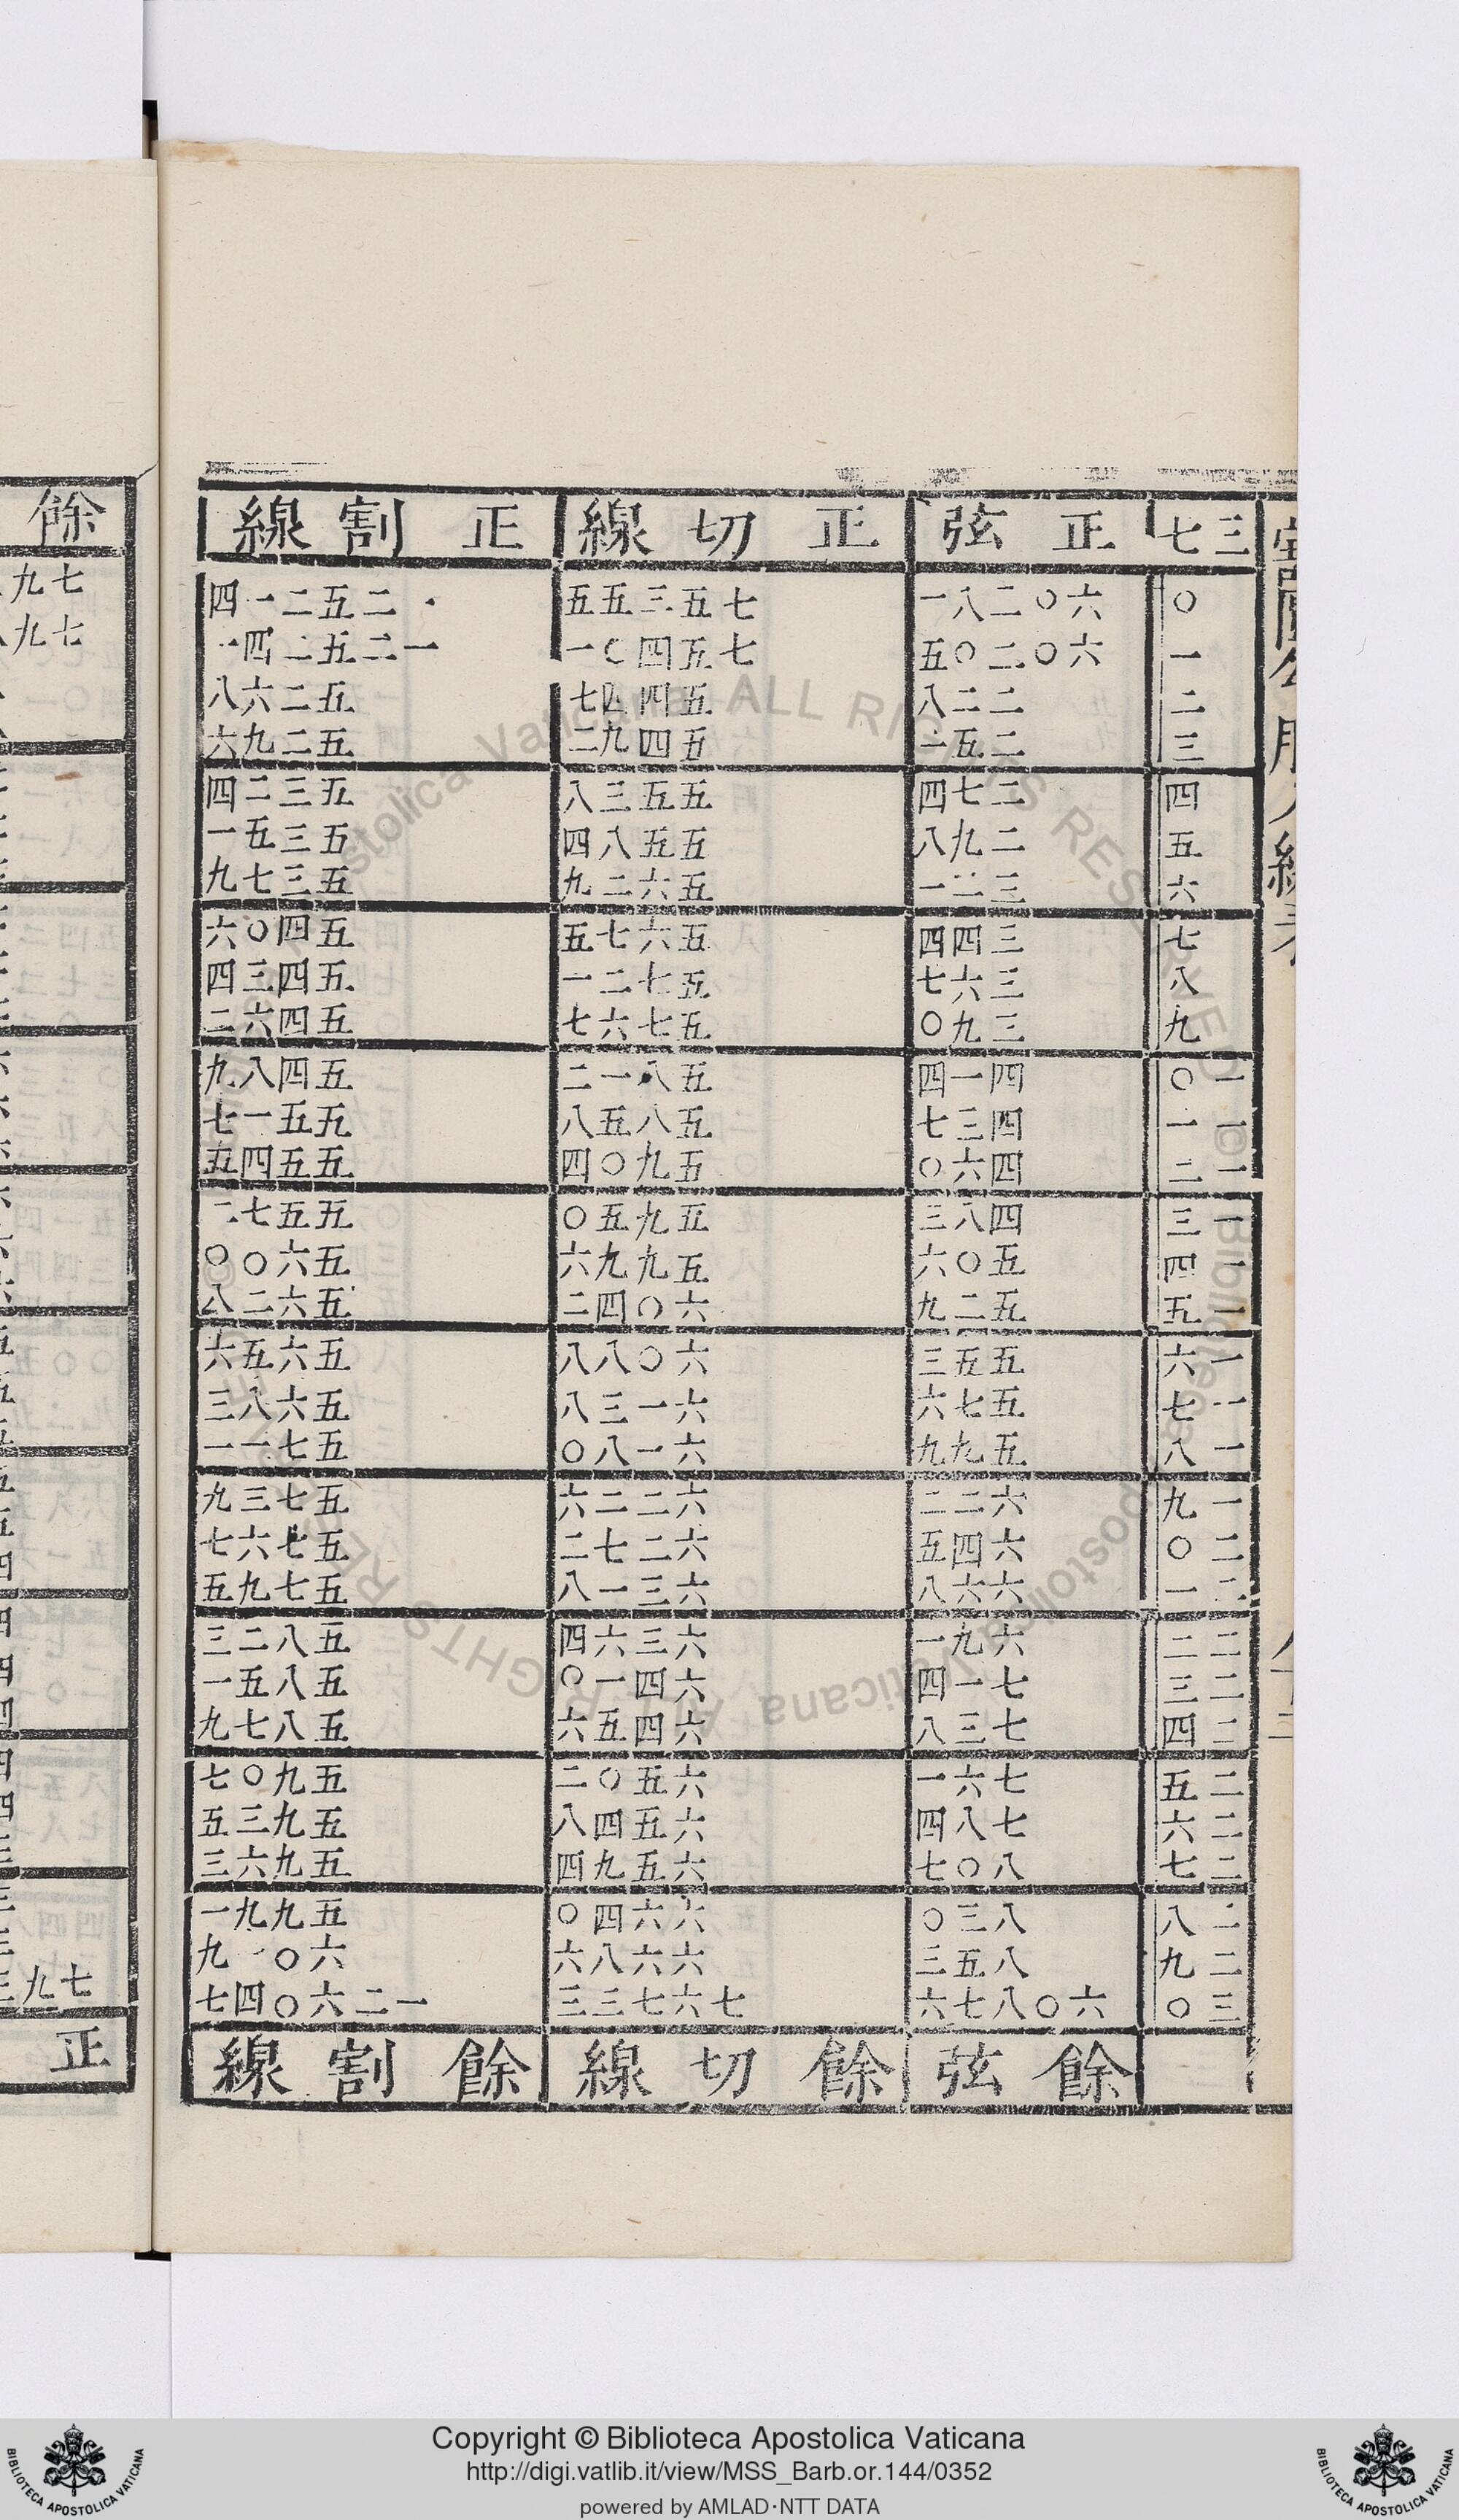 三七 正弦 正切線 正割線
〇 六〇二八一 七五三五五 二五二一四
一 六〇二〇五 七五四〇一 一二五二四一
二 二二八 五四四七 五二六八
三 二五一 五四九二 五二九六
四 二七四 五五三八 五三二四
五 二九八 五五八四 五三五一
六 三二一 五六二九 五三七九
七 三四四 五六七五 五四〇六
八 三六七 五七二一 五四三四
九 三九〇 五七六七 五四六二
一〇 四一四 五八一二 五四八九
一一 四三七 五八五八 五五一七
一二 四六〇 五九〇四 五五四五
一三 四八三 五九五〇 五五七二
一四 五〇六 五九九六 五六〇〇
一五 五二九 六〇四二 五六二八
一六 五五三 六〇八八 五六五六
一七 五七六 六一三八 五六八三
一八 五九九 六一八〇 五七一一
一九 六二二 六二二六 五七三九
二〇 六四五 六二七二 五七六七
二一 六六八 六三一八 五七九五
二二 六九一 六三六四 五八二三
二三 七一四 六四一〇 五八五一
二四 七三八 六四五六 五八七九
二五 七六一 六五〇二 五九〇七
二六 七八四 六五四八 五九三五
二七 八〇七 六五九四 五九六三
二八 八三〇 六六四〇 五九九一
二九 八五三 六六八六 六〇一九
三〇 六〇八七六 七六七三三 一二六〇四七
餘弦 餘切線 餘割線
餘
七九
七九
七九三
正
Copyright © Biblioteca Apostolica Vaticana
http://digi.vatlib.it/view/MSS_Barb.or.144/0352
powered by AMLAD·NTT DATA
BIBLIOTECA APOSTOLICA VATICANA
BIBLIOTECA APOSTOLICA VATICANA